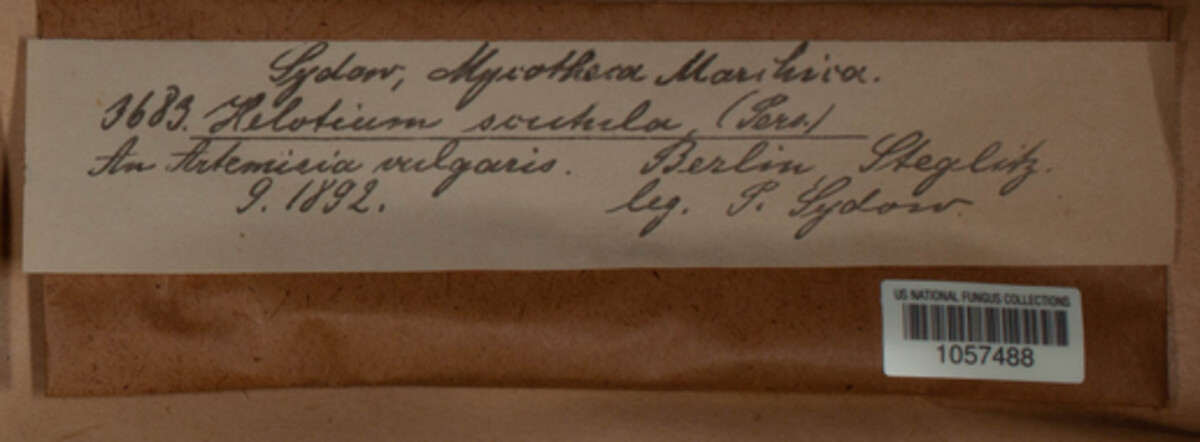 Sydow, Mycotheca Marchica.
3683. Helotium scutula (Pers.)
An Artemisia vulgaris. Berlin, Steglitz.
9. 1892. leg. P. Sydow.
US NATIONAL FUNGUS COLLECTIONS
1057488